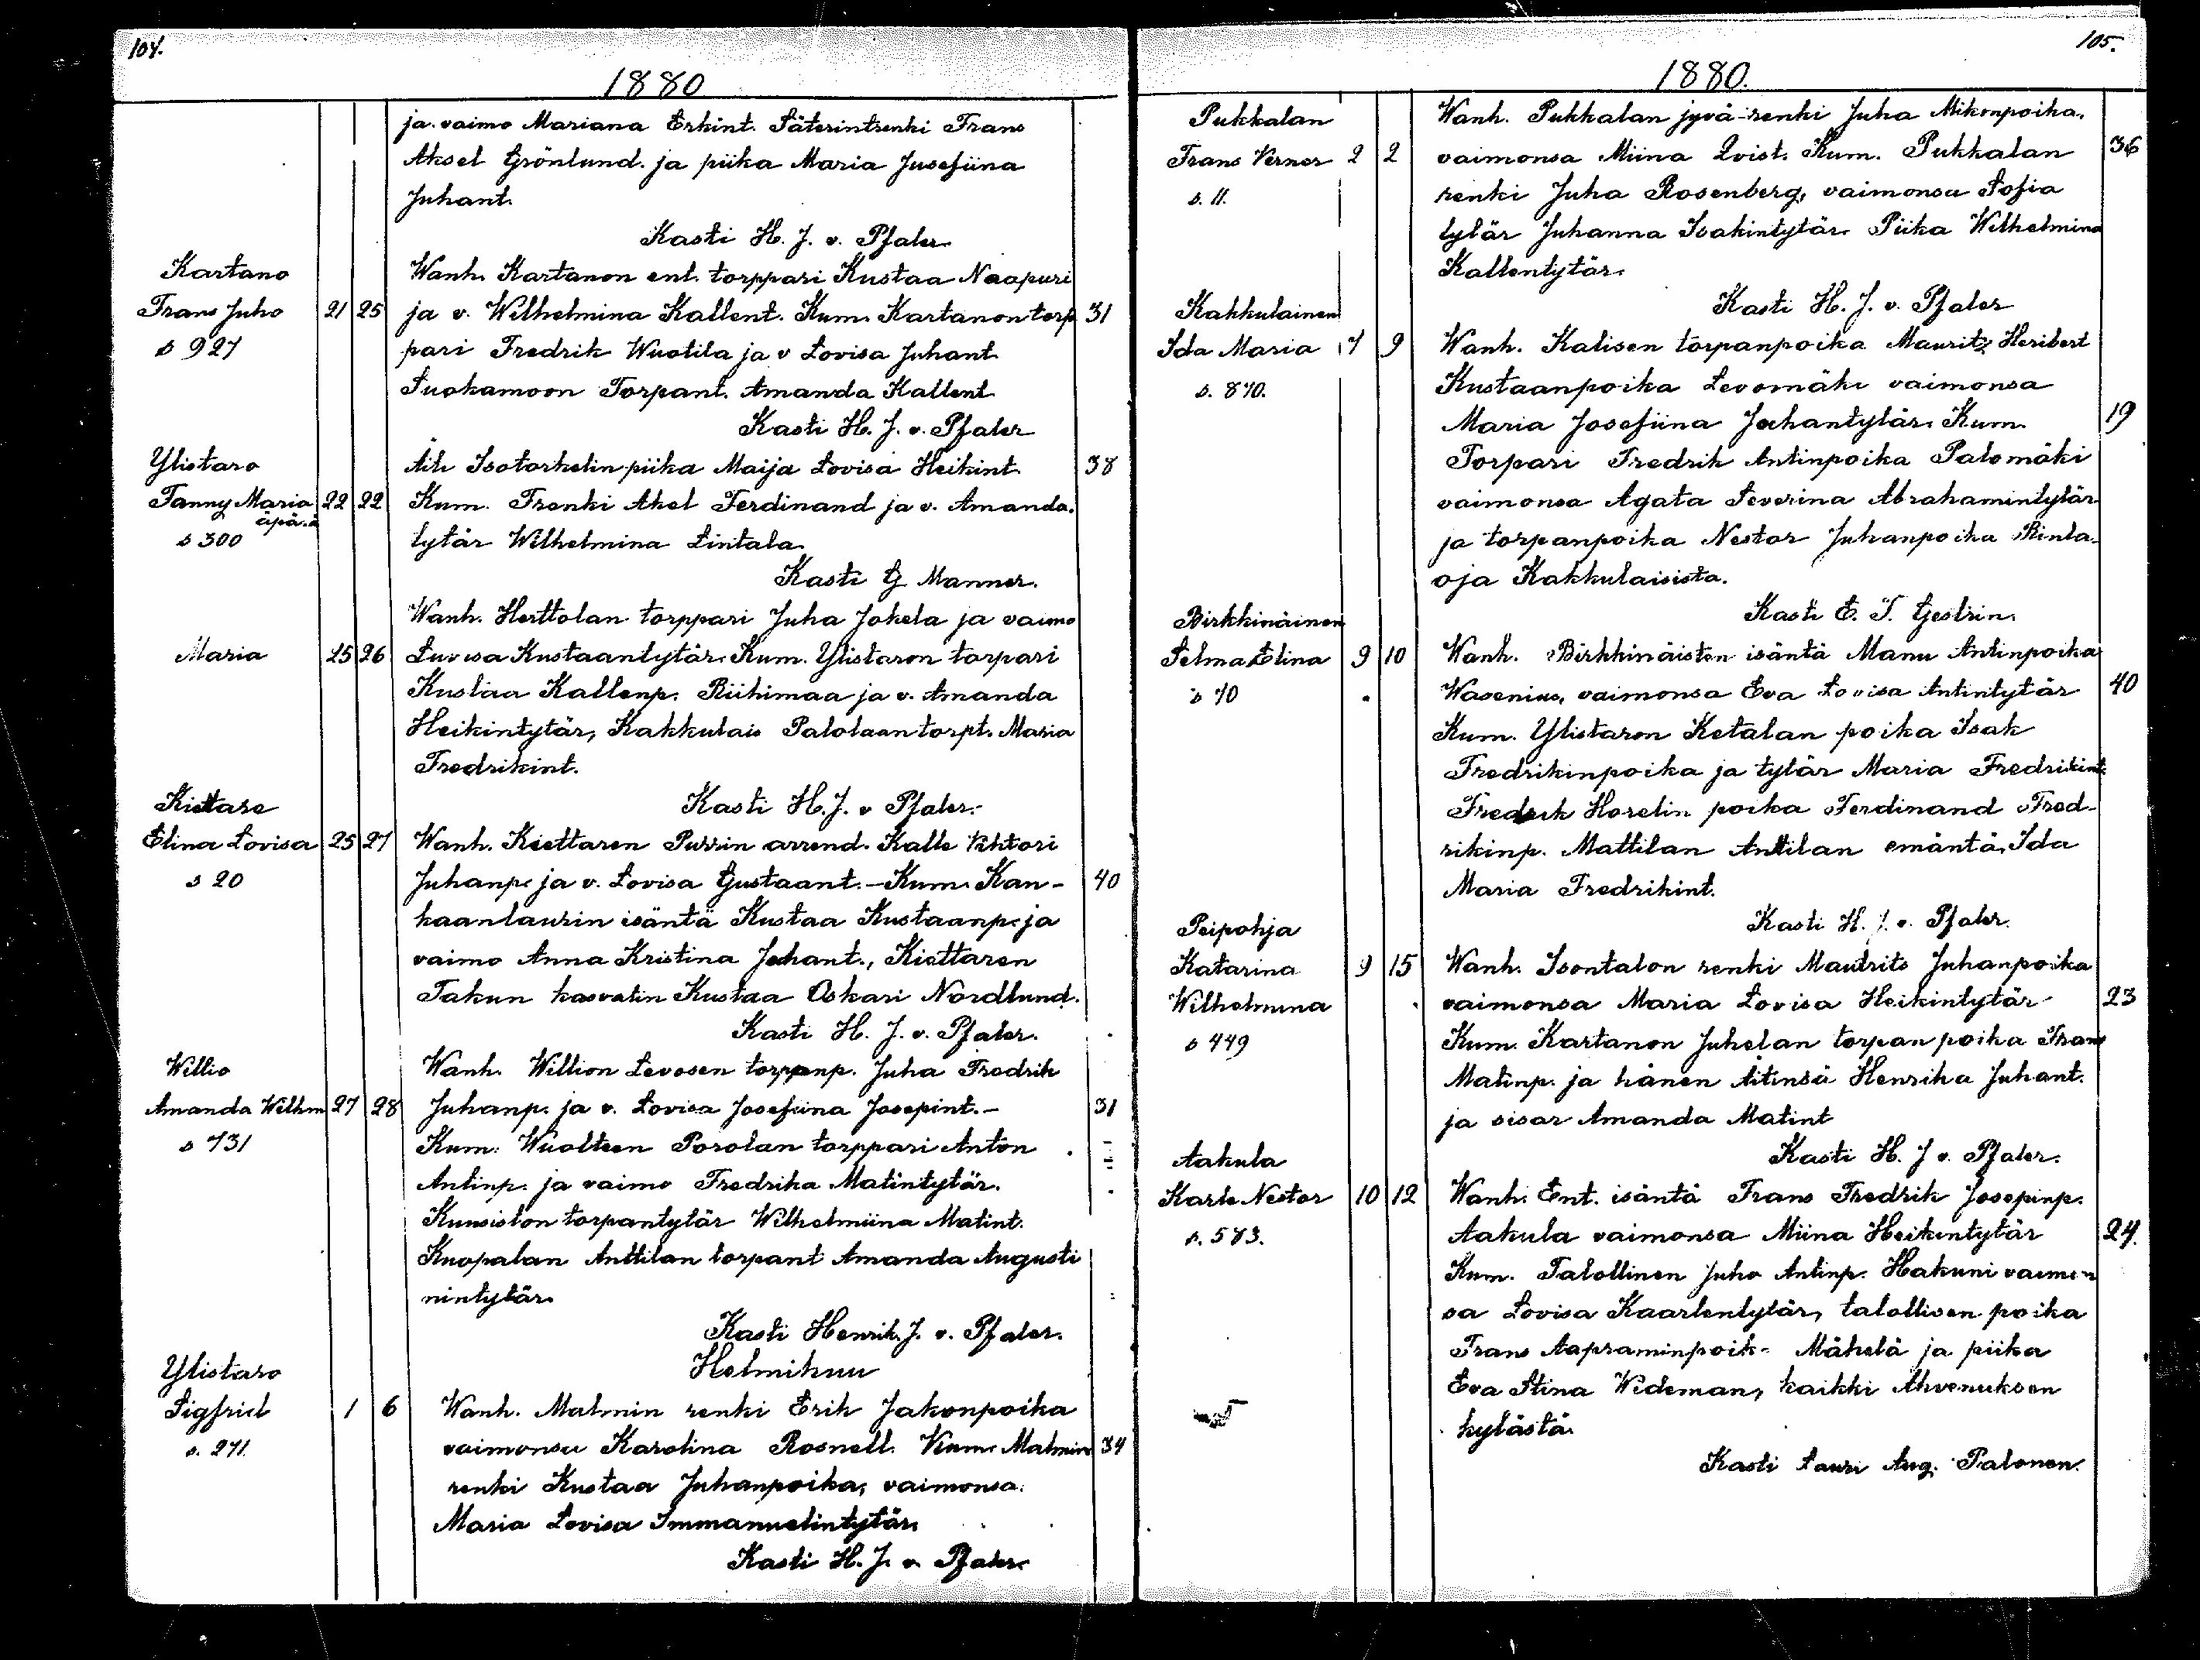 104.
1880
ja vaimo Mariana Erkint. Säterintrenki Frans
Aksel Grönlund. ja piika Maria Jusefiina
Juhant.
Kasti H. J. v. Pfaler
Kartano
Frans Juho 21 25
s 927
Wanh. Kartanon ent. torppari Kustaa Naapuri
ja v. Wilhelmina Kallent. Kum. Kartanon torp 31
pari Fredrik Wuotila ja v Lovisa Juhant
Suokamoon Torpant. Amanda Kallent
Kasti H. J. v. Pfaler
Ylistaro
Fanny Maria 22 22
äpärä
s 300
Äiti Isotorkelin piika Maija Lovisa Heikint. 38
Kum. Trenki Akel Ferdinand ja v. Amanda.
tytär Wilhelmina Lintala
Kasti G Manner.
Maria 25 26
Wanh. Herttolan torppari Juha Jokela ja vaimo
Luvisa Kustaantytär. Kum. Ylistaron torpari
Kustaa Kallenp. Riihimaa ja v. Amanda
Heikintytär, Kakkulais Palolaan torpt. Maria
Fredrikint.
Kasti H. J. v Pfaler.
Kiettare
Elina Lovisa 25 27
s 20
Wanh. Kiettaren Purrin arrend. Kalle Vihtori
Juhanp. ja v. Lovisa Gustaant. - Kum. Kan- 40
kaanlaurin isäntä Kustaa Kustaanp. ja
vaimo Anna Kristina Johant., Kiettaren
Takun kasvatin Kustaa Oskari Nordlund.
Kasti H. J. v. Pfaler.
Willio
Amanda Wilhm 27 28
s 731
Wanh. Willion Levosen torppanp. Juha Fredrik
Juhanp. ja v. Lovisa Josefiina Josepint. - 31
Kum. Wuolteen Porolan torppari Anton
Antinp. ja vaimo Fredrika Matintytär.
Kuusiston torpantytär Wilhelmiina Matint.
Kuopalan Anttilan torpant Amanda Augusti
nintytär.
Kasti Henrik. J. v. Pfaler.
Helmikuu
Ylistaro
Sigfrid 1 6
s. 271.
Wanh. Malmin renki Erik Jakonpoika
vaimonsa Karolina Rosnell. Kum. Malmin 34
renki Kustaa Juhanpoika, vaimonsa
Maria Lovisa Immanuelintytär.
Kasti H. J. v. Pfaler.
105.
1880.
Pukkalan
Frans Verner 2 2
s. 11.
Wanh. Pukkalan jyvä-renki Juha Mikonpoika.
vaimonsa Miina Qvist. Kum. Pukkalan 36
renki Juha Rosenberg, vaimonsa Sofia
tytär Juhanna Isakintytär. Piika Wilhelmina
Kallentytär.
Kasti H. J. v. Pfaler
Kakkulainen
Ida Maria 7 9
s. 870.
Wanh. Kalisen torpanpoika Maurits Heribert
Kustaanpoika Levomäki vaimonsa
Maria Josefiina Johantytär. Kum. 19
Torpari Fredrik Antinpoika Palomäki
vaimonsa Agata Severina Abrahamintytär
ja torpanpoika Nestor Juhanpoika Rinta-
oja Kakkulaisista.
Kasti E. T. Gestrin.
Birkkinäinen
Selma Elina 9 10
s 70
Wanh. Birkkinäisten isäntä Manu Antinpoika
Wasenius, vaimonsa Eva Lovisa Antintytär 40
Kum. Ylistaron Ketalan poika Isak
Fredrikinpoika ja tytär Maria Fredrikint.
Fredrik Horelin poika Ferdinand Fred-
rikinp. Mattilan Anttilan emäntä, Ida
Maria Fredrikint.
Kasti H. J. v. Pfaler.
Peipohja
Katarina 9 15
Wilhelmina
s 449
Wanh. Isontalon renki Mautrits Juhanpoika
vaimonsa Maria Lovisa Heikintytär 23
Kum. Kartanon Juhelan torpan poika Frans
Matinp. ja hänen äitinsä Henrika Juhant.
ja sisar Amanda Matint
Kasti H. J v. Pfaler.
Aakula
Karle Nestor 10 12
s. 573.
Wanh. Ent. isäntä Frans Fredrik Josepinp.
Aakula vaimonsa Miina Heikintytär 24.
Kum. Talollinen Juho Antinp. Hakuni vaimon
sa Lovisa Kaarlentytär, talollisen poika
Frans Aapraminpoik- Mäkelä ja piika
Eva Stina Wideman, kaikki Ahvenuksen
kylästä.
Kasti Lauri Aug. Palonen.